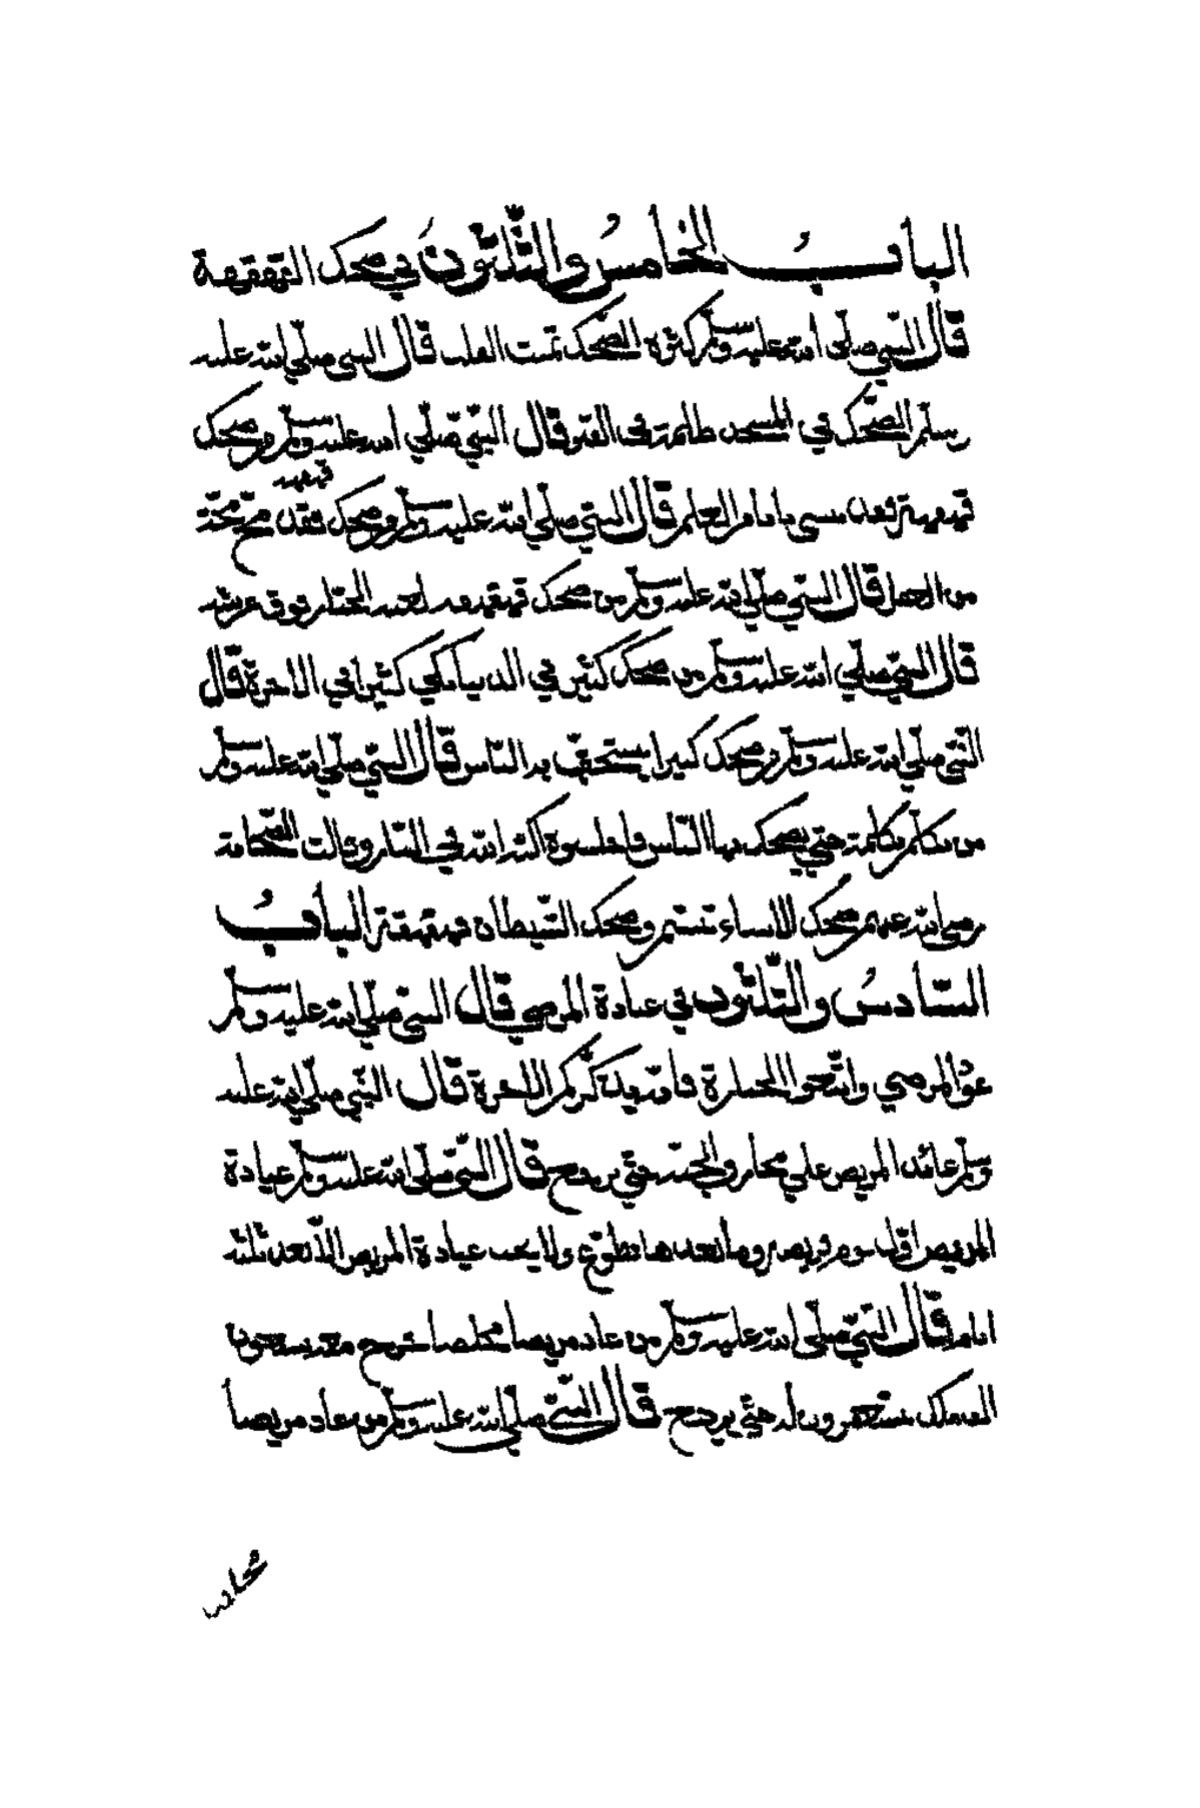 الباب الخامس والثلثون في ضحك القهقهة
قال النبي صلى الله عليه وسلم كثرة الضحك تميت القلب قال النبي صلى الله عليه
وسلم الضحك في المسجد ظلمة في القبر قال النبي صلى الله عليه وسلم من ضحك
قهقهة فقد نسي بابا من العلم قال النبي صلى الله عليه وسلم من ضحك قهقهة فقد مج مجة
من العقل قال النبي صلى الله عليه وسلم من ضحك قهقهة لعنه الجبار فوق عرشه
قال النبي صلى الله عليه وسلم من ضحك كثير في الدنيا بكي كثيرا في الاخرة قال
النبي صلى الله عليه وسلم من ضحك كثيرا يستخف به الناس قال النبي صلى الله عليه وسلم
من تكلم بكلمة حتي يضحك بها الناس اكبه الله في النار وقالت الصحابة
رضي الله عنهم ضحك الانبياء تبسم وضحك الشيطان قهقهة الباب
السادس والثلثون في عيادة المرضي قال النبي صلى الله عليه وسلم
عودوا المرضي واتبعوا الجنازة فانه يذكركم الاخرة قال النبي صلى الله عليه
وسلم عائد المريض علي مخارف الجنة حتي يرجع قال النبي صلى الله عليه وسلم عيادة
المريض اول يوم فريضة وما بعدها تطوع ولا يجب عيادة المريض الا بعد ثلثة
ايام قال النبي صلى الله عليه وسلم من عاد مريضا مخلصا خرج معه سبعون
الف ملك يستغفرون له حتي يرجع قال النبي صلى الله عليه وسلم من عاد مريضا